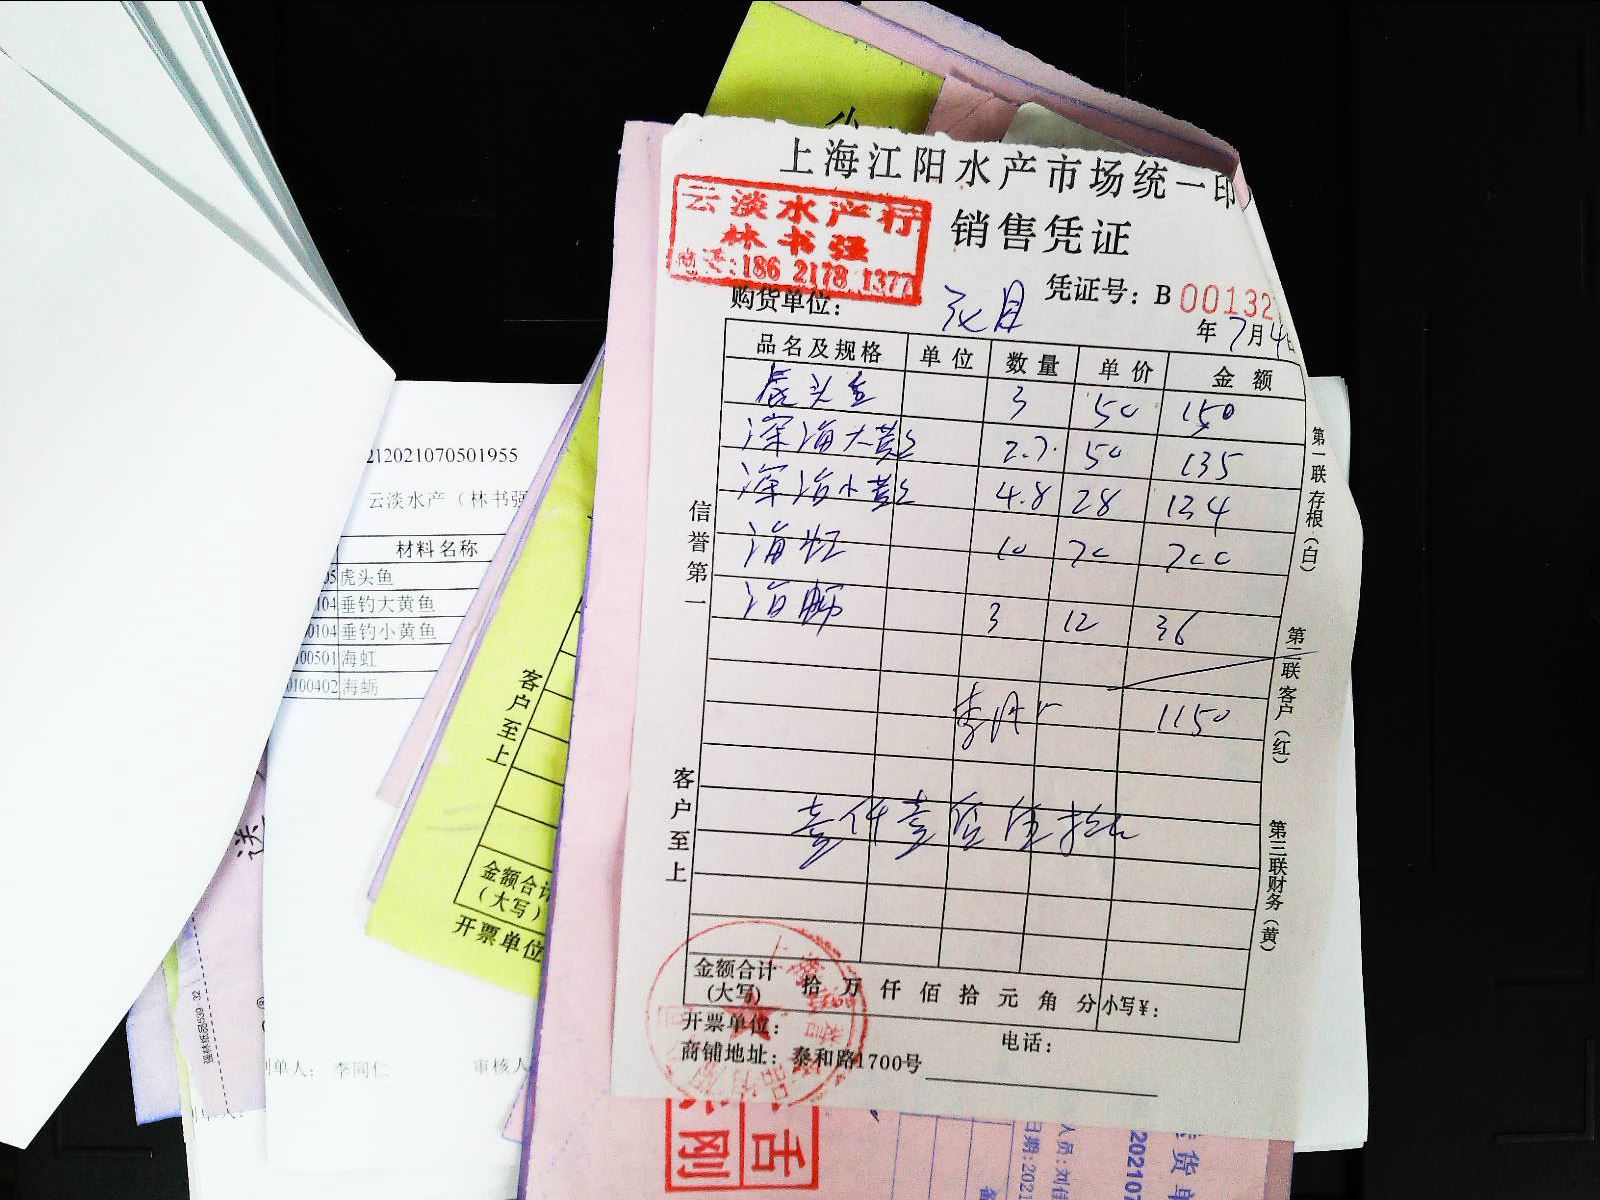 上海江阳水产市场统一印
销售凭证
云淡水产行
林书强
电话:186 2178 1377
凭证号: B 00132
购货单位:
年7月4日
品名及规格 单位 数量 单价 金额
虎头鱼 3 50 150
深海大黄鱼 2.7 50 135
深海小黄鱼 4.8 28 134
海虹 10 70 700
海蛎 3 12 36
1150
壹仟壹佰伍拾元
金额合计
(大写) 拾 万 仟 佰 拾 元 角 分 小写¥:
开票单位: 电话:
商铺地址: 泰和路1700号
信誉第一
客户至上
第一联 存根(白)
第二联 客户(红)
第三联 财务(黄)
212021070501955
云淡水产(林书强
材料名称
05 虎头鱼
104 垂钓大黄鱼
0104 垂钓小黄鱼
100501 海虹
0100402 海蛎
制单人: 李同仁 审核人
客户至上
金额合计
(大写)
开票单位
强林纸品539-32